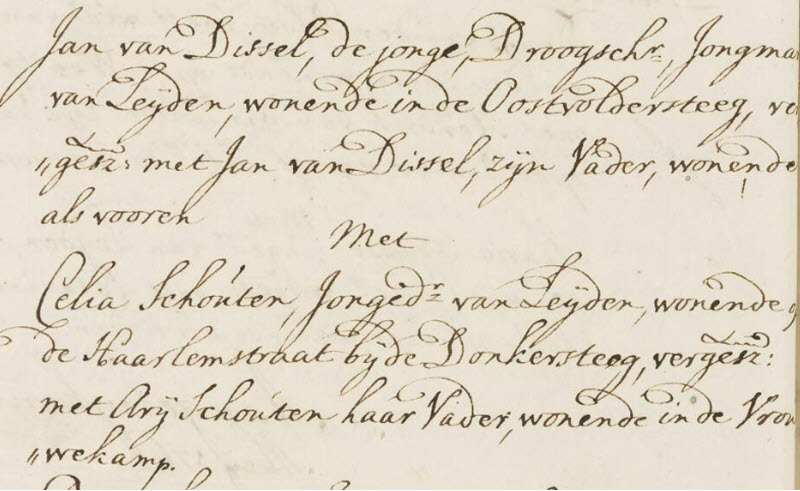 Jan van Dissel, de jonge, Droogschr., Jongma
van Leyden, wonende in de Oostvoldersteeg, ve
„gesz: met Jan van Dissel, zijn Vader, wonende
als vooren
Met
Celia Schouten, Jongedr. van Leyden, wonende o
de Haarlemstraat bij de Donkersteeg, vergesz:
met Arij Schouten haar Vader, wonende in de Vrou
„wekamp.